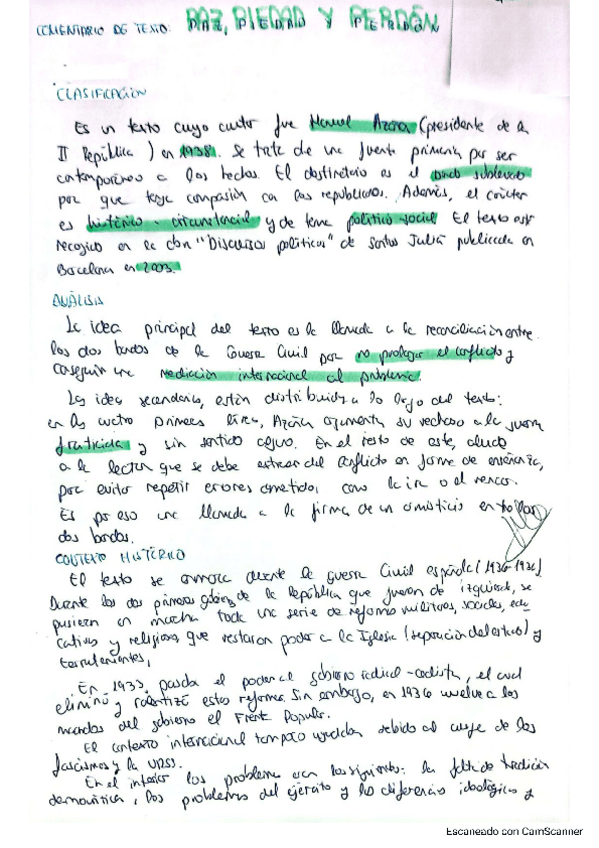 COMENTARIO DE TEXTO: PAZ, PIEDAD Y PERDÓN
CLASIFICACIÓN
Es un texto cuyo autor fue Manuel Azaña (presidente de la
II República) en 1938. Se trata de una fuente primaria por ser
contemporáneo a los hechos. El destinatario es el bando sublevado
por que tenga compasión con los republicanos. Además, el carácter
es histórico-circunstancial y de tema político-social. El texto está
recogido en la obra "Discursos políticos" de Santos Juliá publicada en
Barcelona en 2003.
ANÁLISIS
La idea principal del texto es la llamada a la reconciliación entre
los dos bandos de la Guerra Civil por no prolongar el conflicto y
conseguir una mediación internacional al problema.
Las ideas secundarias, están distribuidas a lo largo del texto:
en las cuatro primeras líneas, Azaña argumenta su rechazo a la guerra
fratricida y sin sentido alguno. En el resto de este, alude
a la lección que se debe extraer del conflicto en forma de enseñanza,
para evitar repetir errores cometidos, como la ira o el rencor.
Es por eso una llamada a la firma de un armisticio entre
dos bandos.
CONTEXTO HISTÓRICO
El texto se enmarca durante la guerra Civil española
Durante los dos primeros gobiernos de la República que fueron de izquierda, se
pusieron en marcha toda una serie de reformas militares, sociales, edu
cativas y religiosas que restaron poder a la Iglesia (separación del estado) y
terratenientes,
En 1933, pasda el poder al gobierno radical-cedista, el cual
eliminó y ralentizó estas reformas. Sin embargo, en 1936 vuelve a los
mandos del gobierno el Frente Popular.
El contexto internacional tampoco ayudaba debido al auge de los
fascismos y la URSS.
En el interior los problemas eran los siguientes: la falta de tradición
democrática, los problemas del ejército y las diferencias ideológicas y
Escaneado con CamScanner